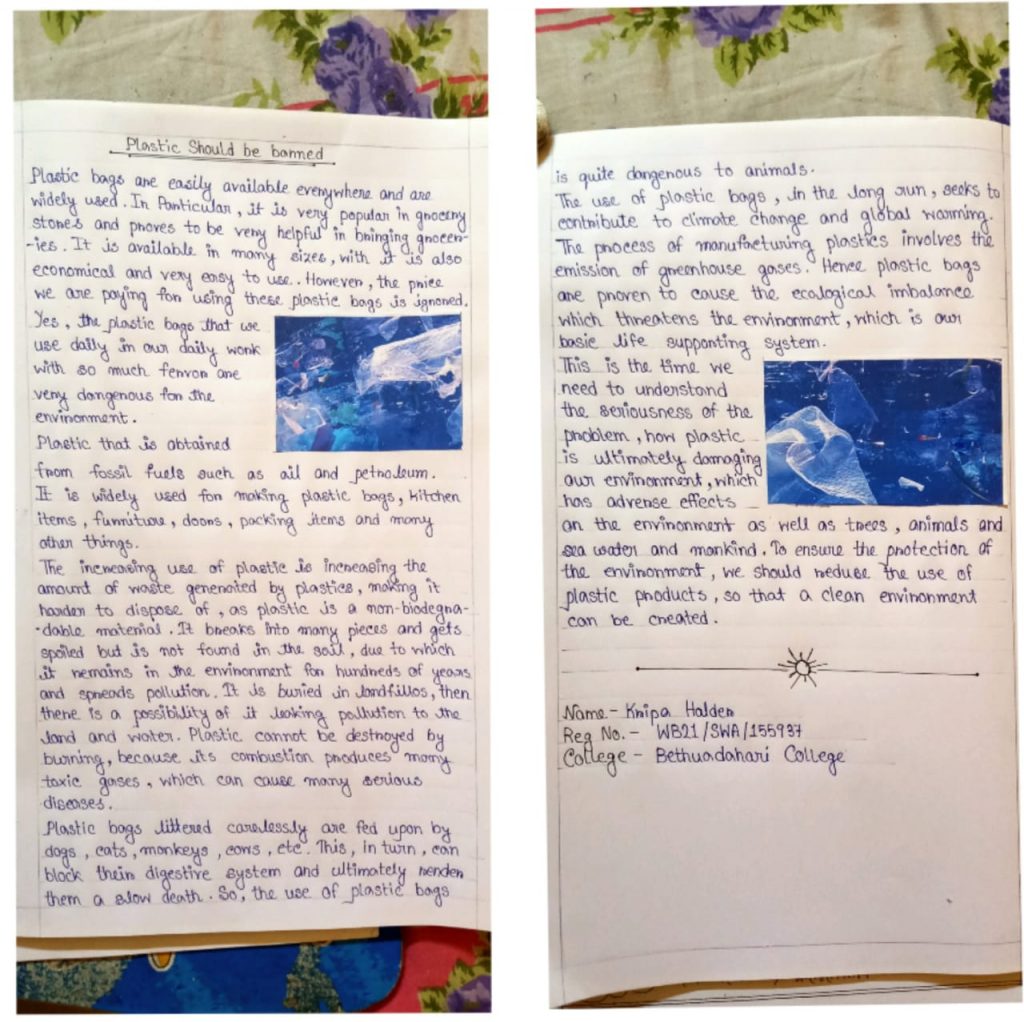 Plastic Should be banned
Plastic bags are easily available everywhere and are
widely used. In Particular, it is very popular in grocery
stores and proves to be very helpful in bringing grocer-
-ies. It is available in many sizes, with it is also
economical and very easy to use.. However, the price
we are paying for using these plastic bags is ignored.
Yes, the plastic bags that we
use daily in our daily work
with so much fervor are
very dangerous for the
environment.
Plastic that is obtained
from fossil fuels such as oil and petroleum.
It is widely used for making plastic bags, kitchen
items, furniture, doors, packing items and many
other things.
The increasing use of plastic is increasing the
amount of waste generated by plastics, making it
harder to dispose of, as plastic is a non-biodegra-
-dable material. It breaks into many pieces and gets
spoiled but is not found in the soil, due to which
it remains in the environment for hundreds of years
and spreads pollution. It is buried in landfillos, then
there is a possibility of it leaking pollution to the
land and water. Plastic cannot be destroyed by
burning, because its combustion produces many
toxic gases, which can cause many serious
diseases.
Plastic bags littered carelessly are fed upon by
dogs, cats, monkeys, cows, etc. This, in turn, can
block their digestive system and ultimately render
them a slow death. So, the use of plastic bags
is quite dangerous to animals.
The use of plastic bags, in the long run, seeks to
contribute to climate change and global warming.
The process of manufacturing plastics involves the
emission of greenhouse gases. Hence plastic bags
are proven to cause the ecological imbalance
which threatens the environment, which is our
basic life supporting system.
This is the time we
need to understand
the seriousness of the
problem, how plastic
is ultimately damaging
our environment, which
has adverse effects
on the environment as well as trees, animals and
sea water and mankind. To ensure the protection of
the environment, we should reduse the use of
plastic products, so that a clean environment
can be created.
Name - Kripa Halder
Reg No. - WB21/SWA/155937
College - Bethuadahari College